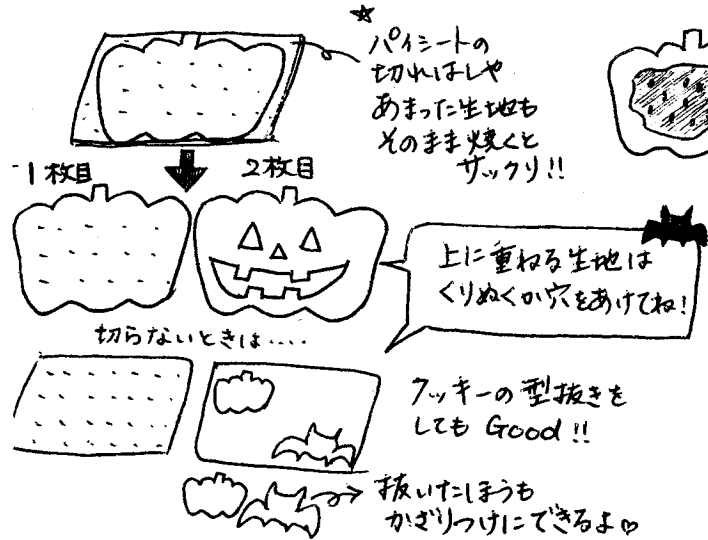 ☆
パイシートの
切れはしや
あまった生地も
そのまま焼くと
サックリ!!
1枚目
2枚目
上に重ねる生地は
くりぬくか穴をあけてね!
切らないときは....
クッキーの型抜きを
しても Good!!
抜いたほうも
かざりつけにできるよ♡